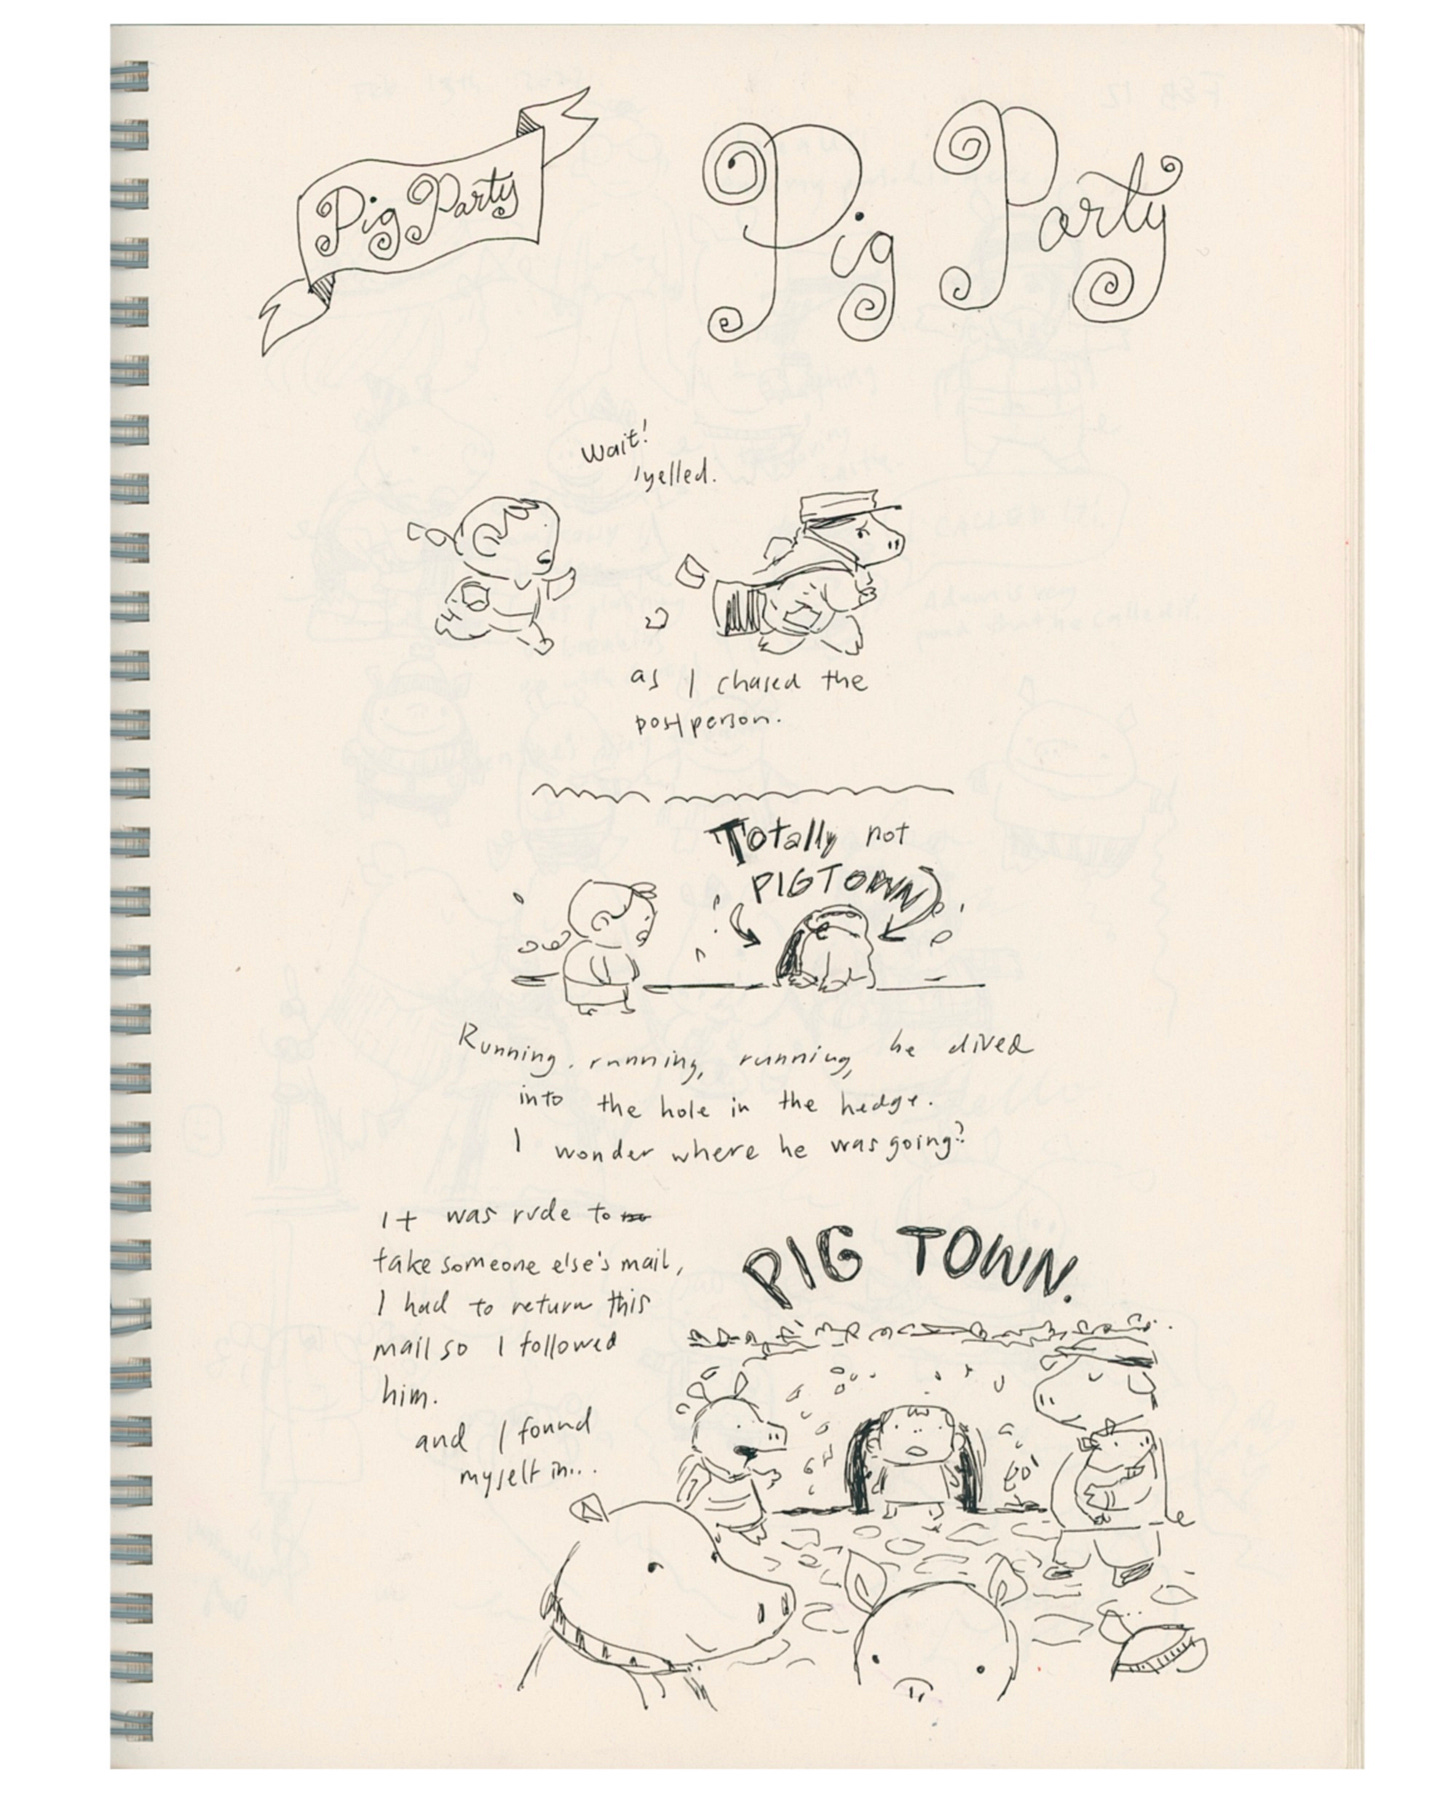 Pig Party
Pig Party
Wait!
I yelled.
as I chased the
postperson.
Totally not
PIGTOWN
Running, running, running, he dived
into the hole in the hedge.
I wonder where he was going?
It was rude to
take someone else's mail,
I had to return this
mail so I followed
him.
and I found
myself in...
PIG TOWN.